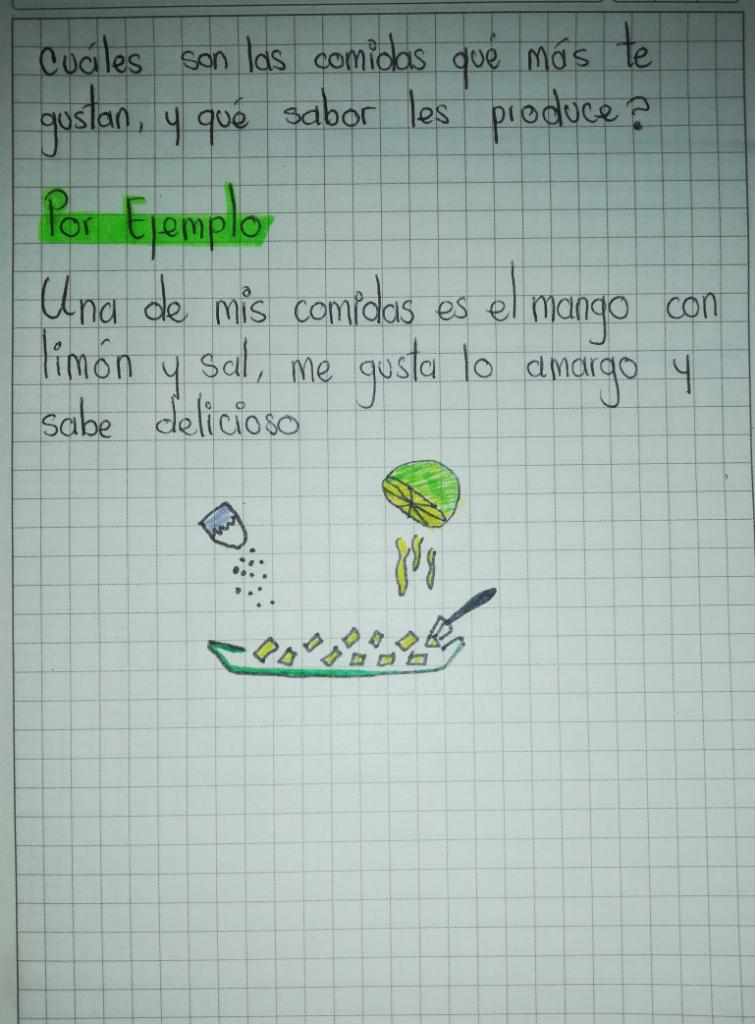 Cuáles son las comidas qué más te
gustan, y qué sabor les produce?
Por Ejemplo
Una de mis comidas es el mango con
limón y sal, me gusta lo amargo y
sabe delicioso